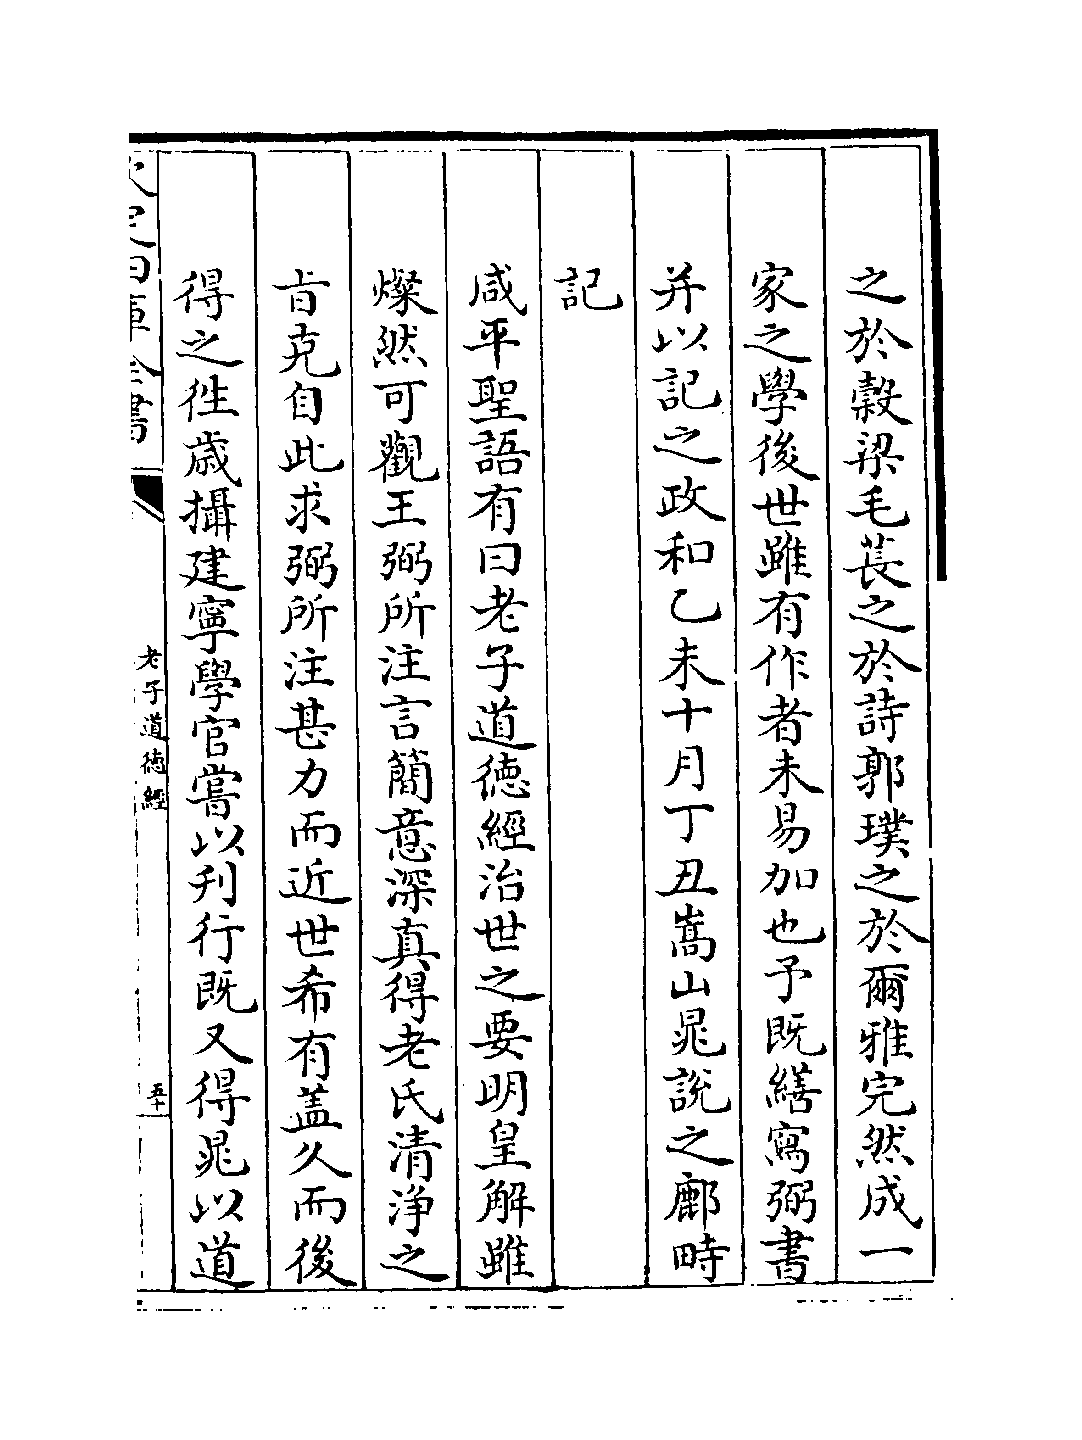 之於榖梁毛萇之於詩郭璞之於爾雅完然成一
家之學後世雖有作者未易加也予既繕寫弼書
并以記之政和乙未十月丁丑嵩山晁說之鄜畤
記
咸平聖語有曰老子道德經治世之要明皇解雖
燦然可觀王弼所注言簡意深真得老氏清浄之
㫖克自此求弼所注甚力而近世希有盖久而後
得之徃歳攝建寧學官嘗以刋行既又得晁以道
欽定四庫全書
老子道徳經
五十